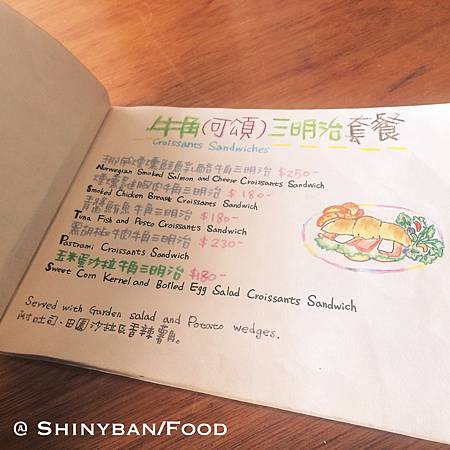 牛角(可頌)三明治套餐
Croissants Sandwiches
挪威煙燻鮭魚乳酪牛角三明治 $250-
Norwegian Smoked Salmon and Cheese Croissants Sandwich
煙燻雞胸肉牛角三明治 $180-
Smoked Chicken Breast Croissants Sandwich
青醬鮪魚牛角三明治 $180-
Tuna Fish and Pesto Croissants Sandwich
黑胡椒牛肉牛角三明治 $230-
Pastrami Croissants Sandwich
玉米蛋沙拉牛角三明治 $180-
Sweet Corn Kernel and Boiled Egg Salad Croissants Sandwich
Served with Garden salad and Potato wedges.
附吐司、田園沙拉&香辣薯角。
@ SHINYBAN/FOOD